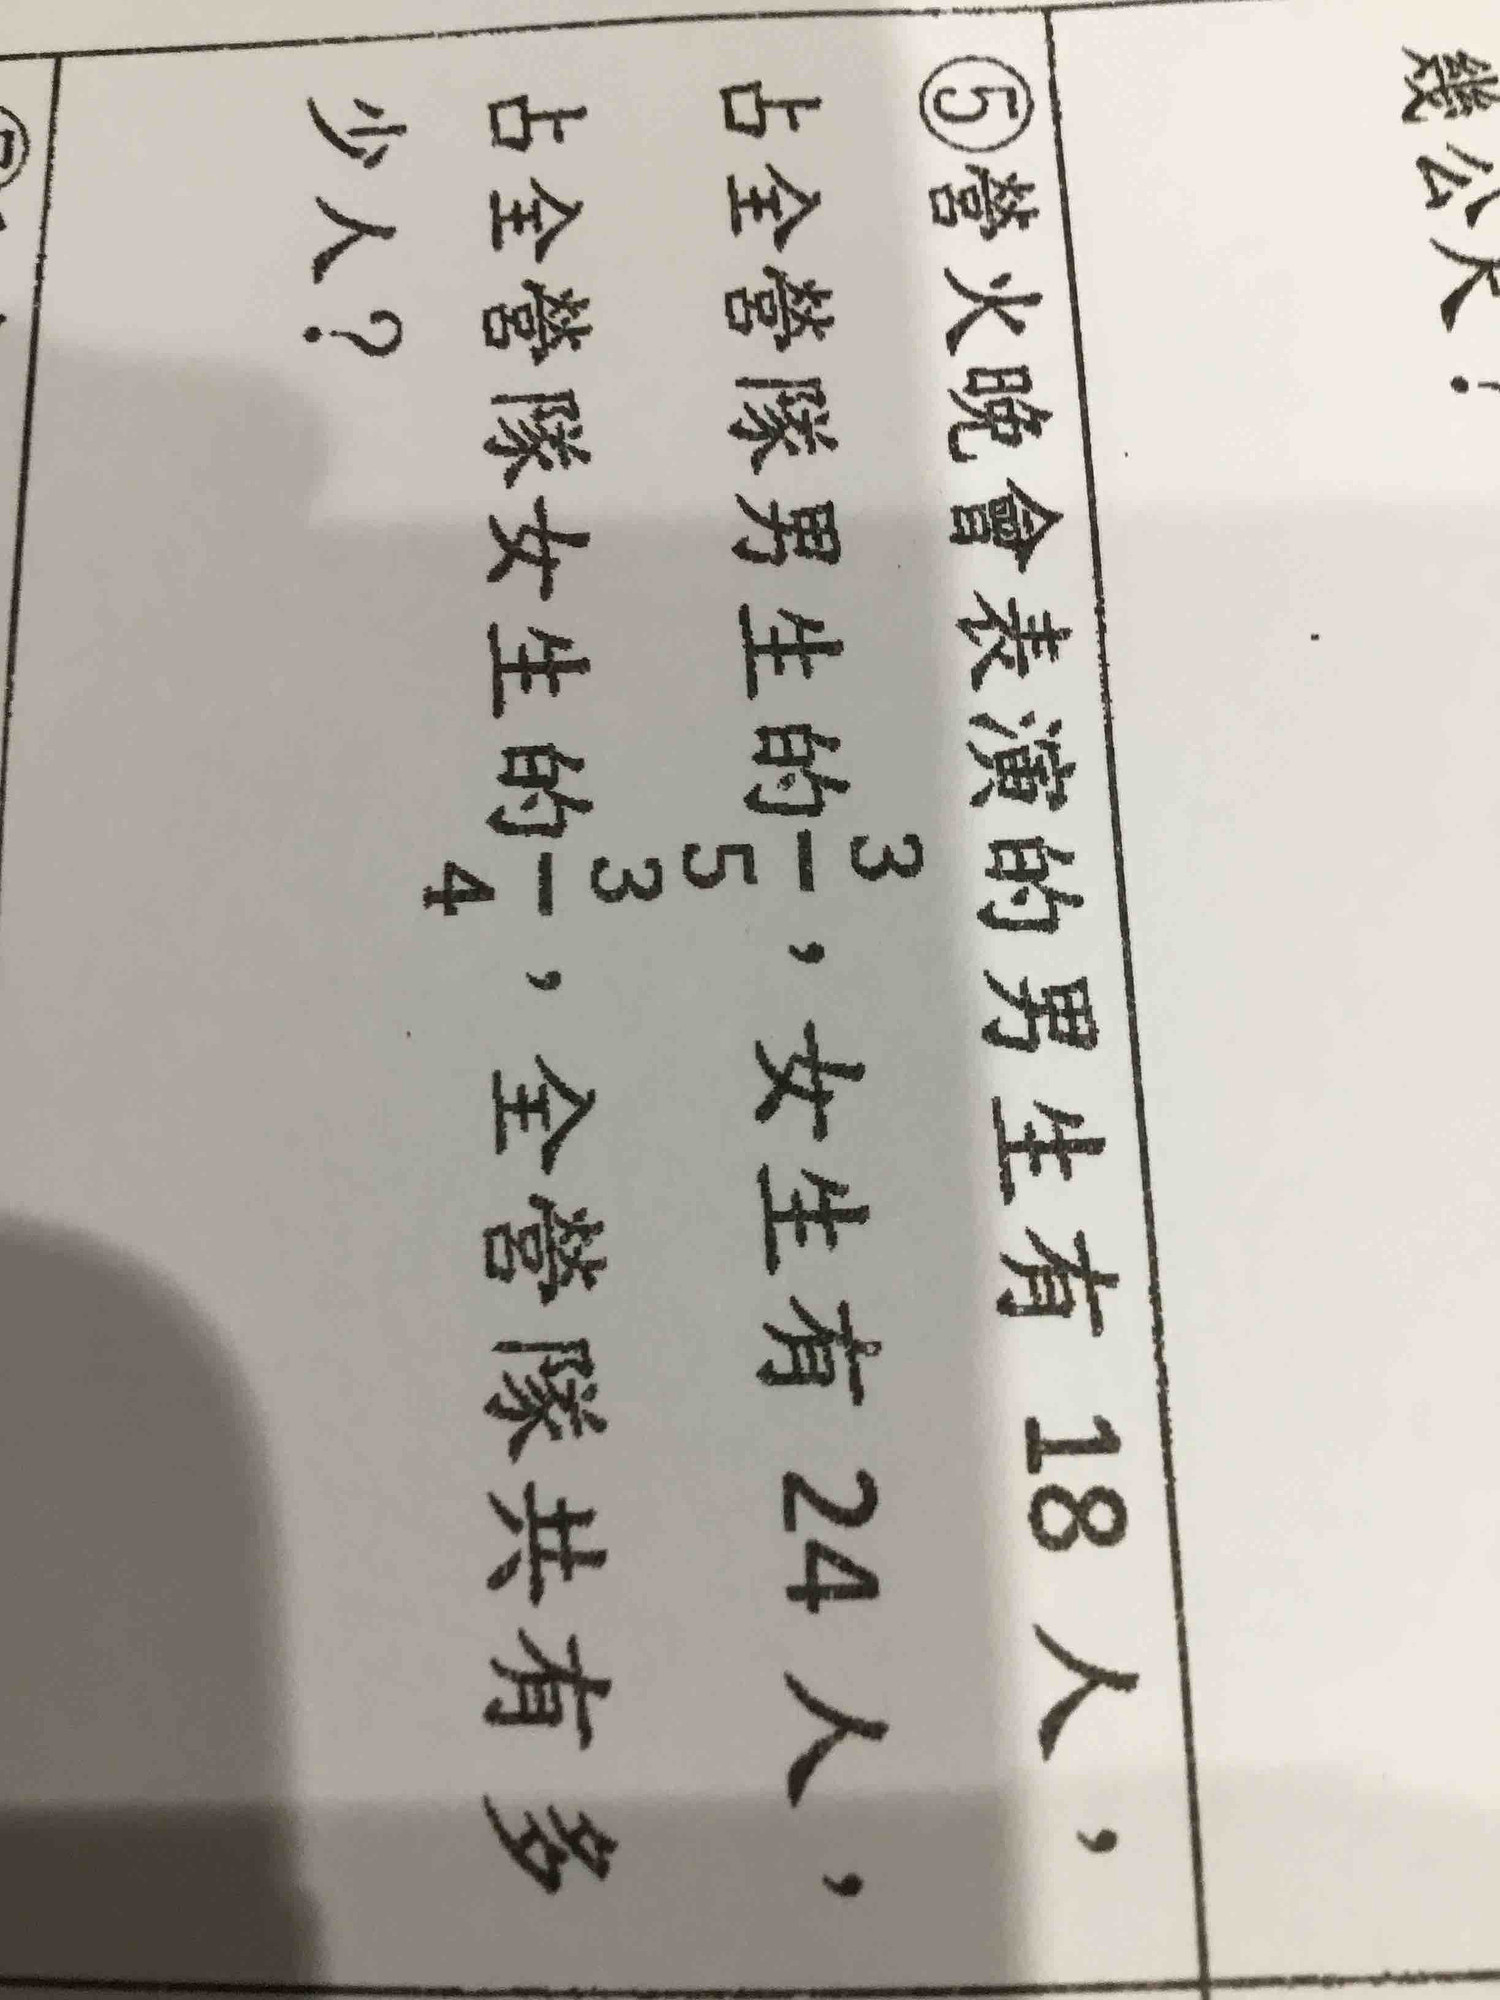 幾公尺?
⑤營火晚會表演的男生有 18 人,
占全營隊男生的3/5,女生有 24 人,
占全營隊女生的3/4,全營隊共有多
少人?